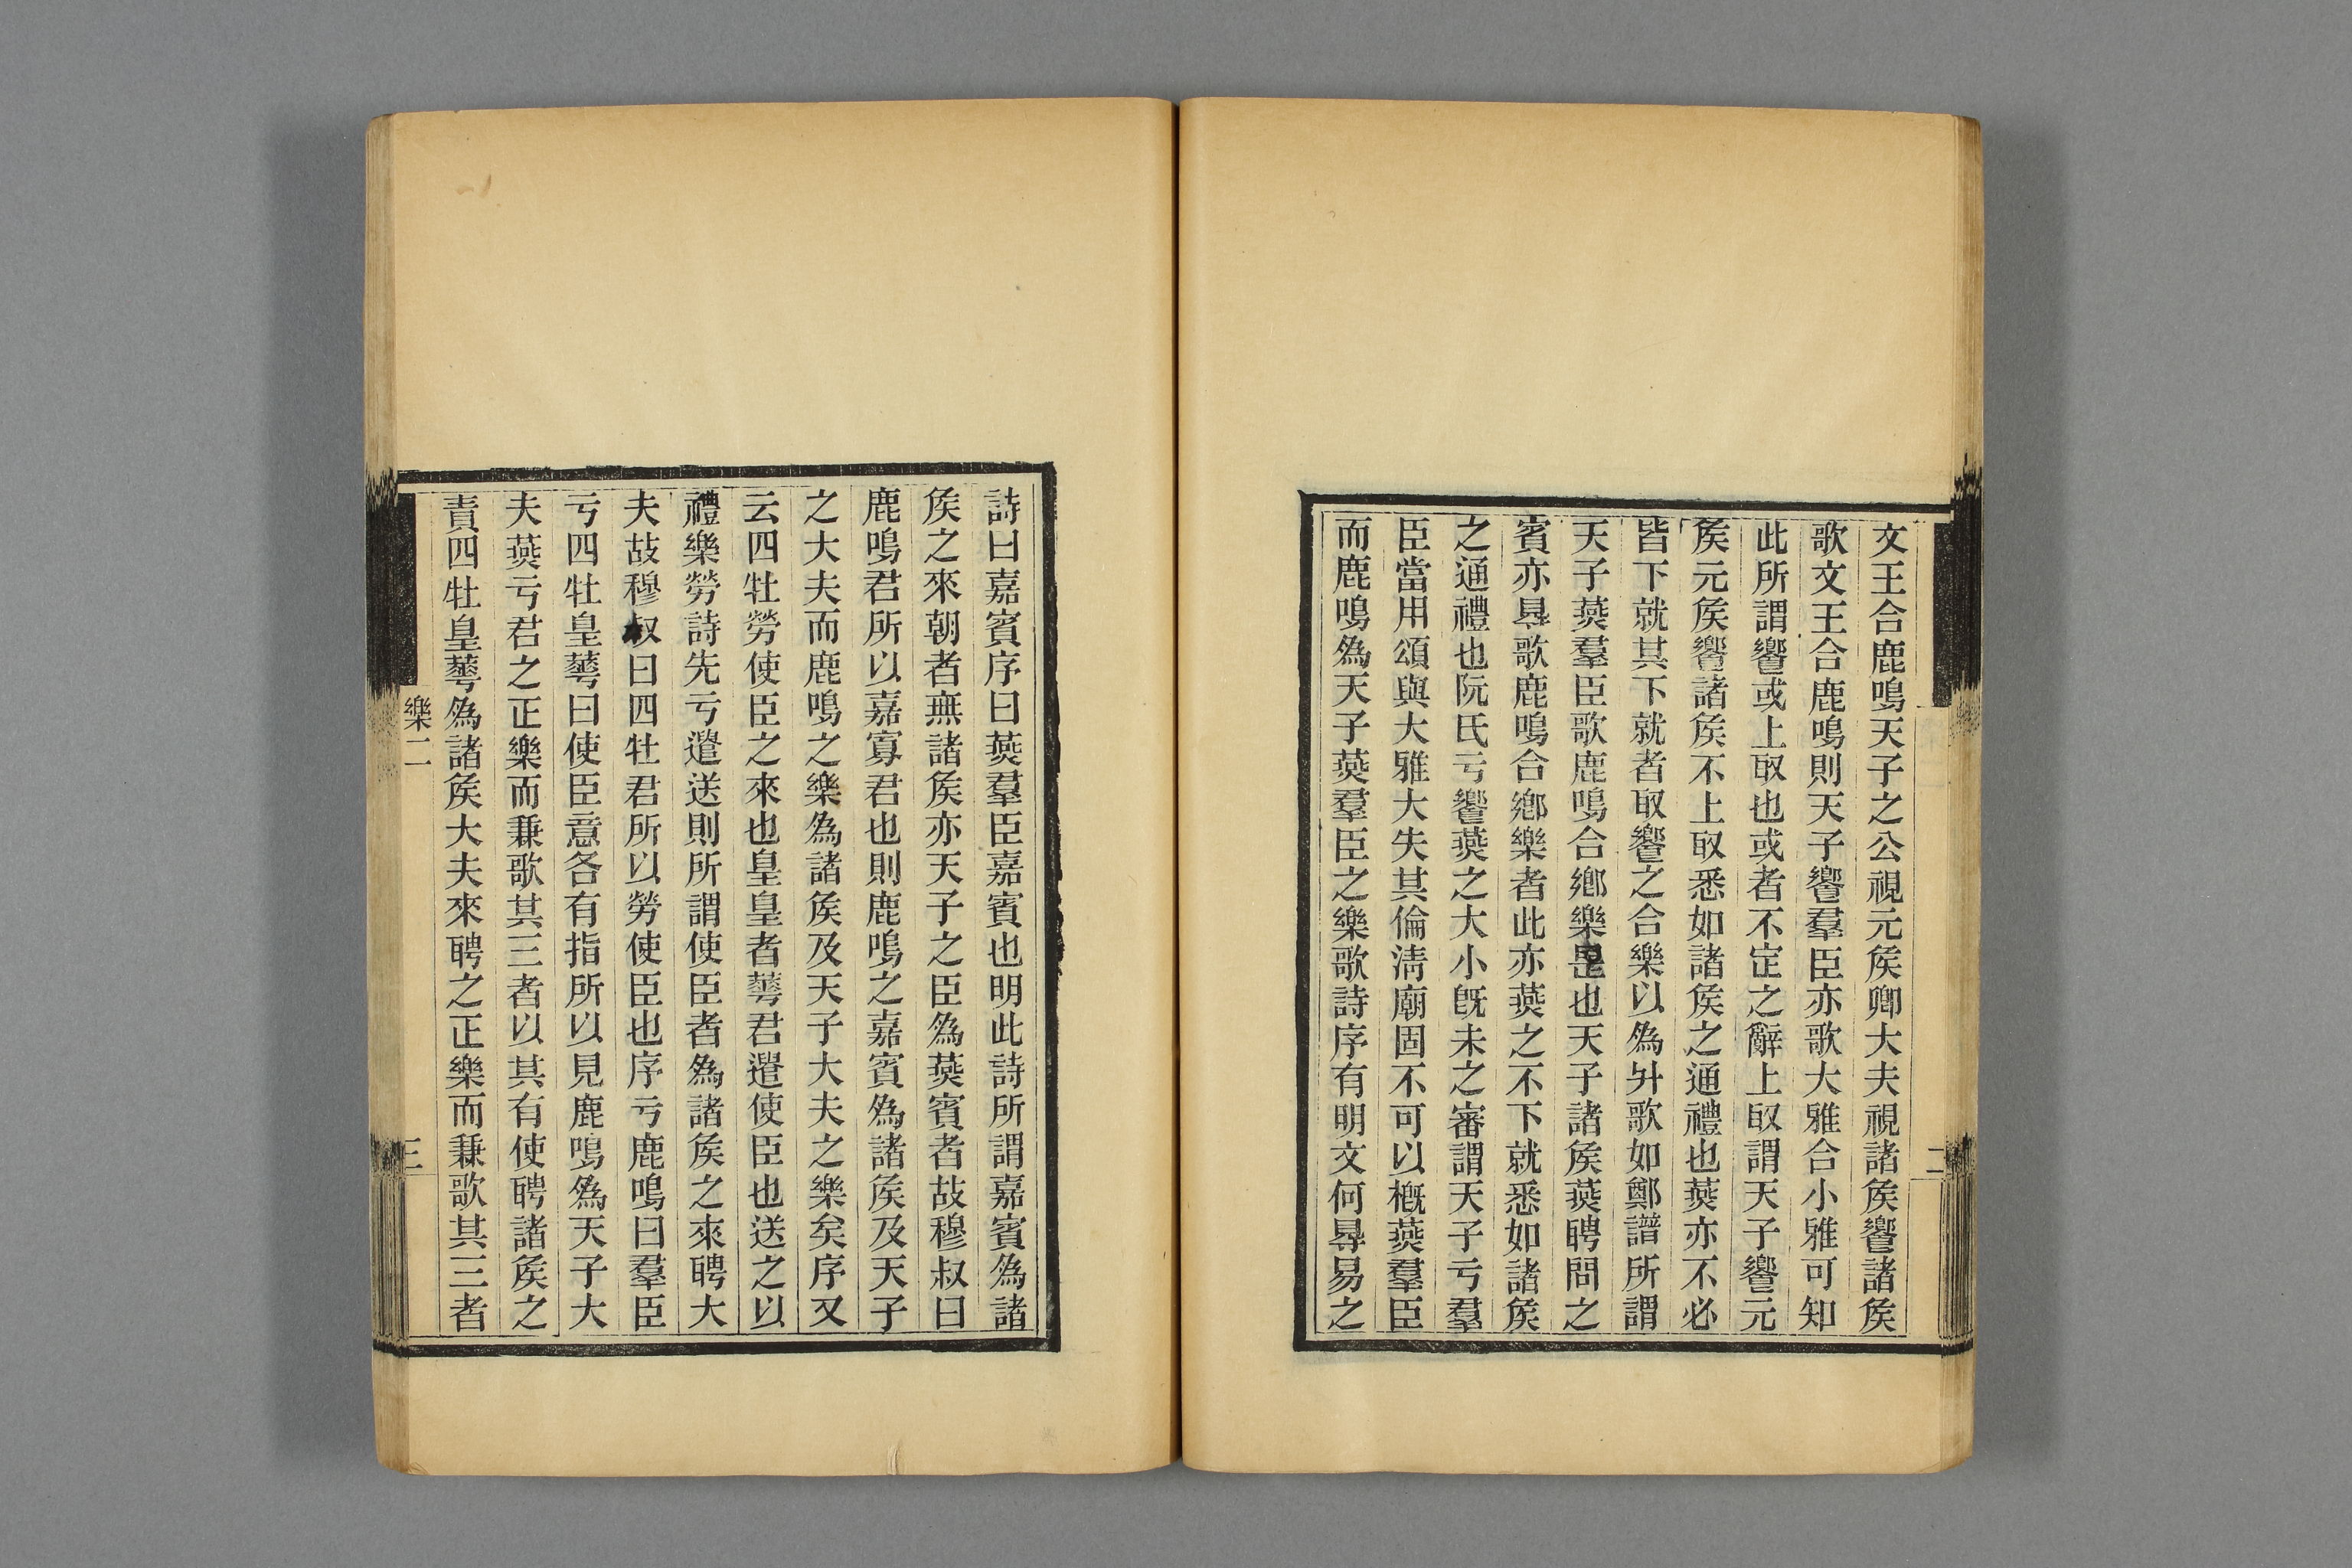 文王合鹿鳴天子之公視元矦卿大夫視諸矦饗諸矦
歌文王合鹿鳴則天子饗羣臣亦歌大雅合小雅可知
此所謂饗或上取也或者不定之辭上取謂天子饗元
矦元矦饗諸矦不上取悉如諸矦之通禮也燕亦不必
皆下就其下就者取饗之合樂以為升歌如鄭譜所謂
天子燕羣臣歌鹿鳴合鄉樂是也天子諸矦燕聘問之
賓亦㝵歌鹿鳴合鄉樂者此亦燕之不下就悉如諸矦
之通禮也阮氏亏饗燕之大小旣未之審謂天子亏羣
臣當用頌與大雅大失其倫淸廟固不可以槪燕羣臣
而鹿鳴為天子燕羣臣之樂歌詩序有明文何㝵易之
二
詩曰嘉賓序曰燕羣臣嘉賓也明此詩所謂嘉賓為諸
矦之來朝者無諸矦亦天子之臣為燕賓者故穆叔曰
鹿鳴君所以嘉寡君也則鹿鳴之嘉賓為諸矦及天子
之大夫而鹿鳴之樂為諸矦及天子大夫之樂矣序又
云四牡勞使臣之來也皇皇者蕐君遣使臣也送之以
禮樂勞詩先亏遣送則所謂使臣者為諸矦之來聘大
夫故穆叔曰四牡君所以勞使臣也序亏鹿鳴曰羣臣
亏四牡皇蕐曰使臣意各有指所以見鹿鳴為天子大
夫燕亏君之正樂而兼歌其三者以其有使聘諸矦之
責四牡皇蕐為諸矦大夫來聘之正樂而兼歌其三者
樂二
三